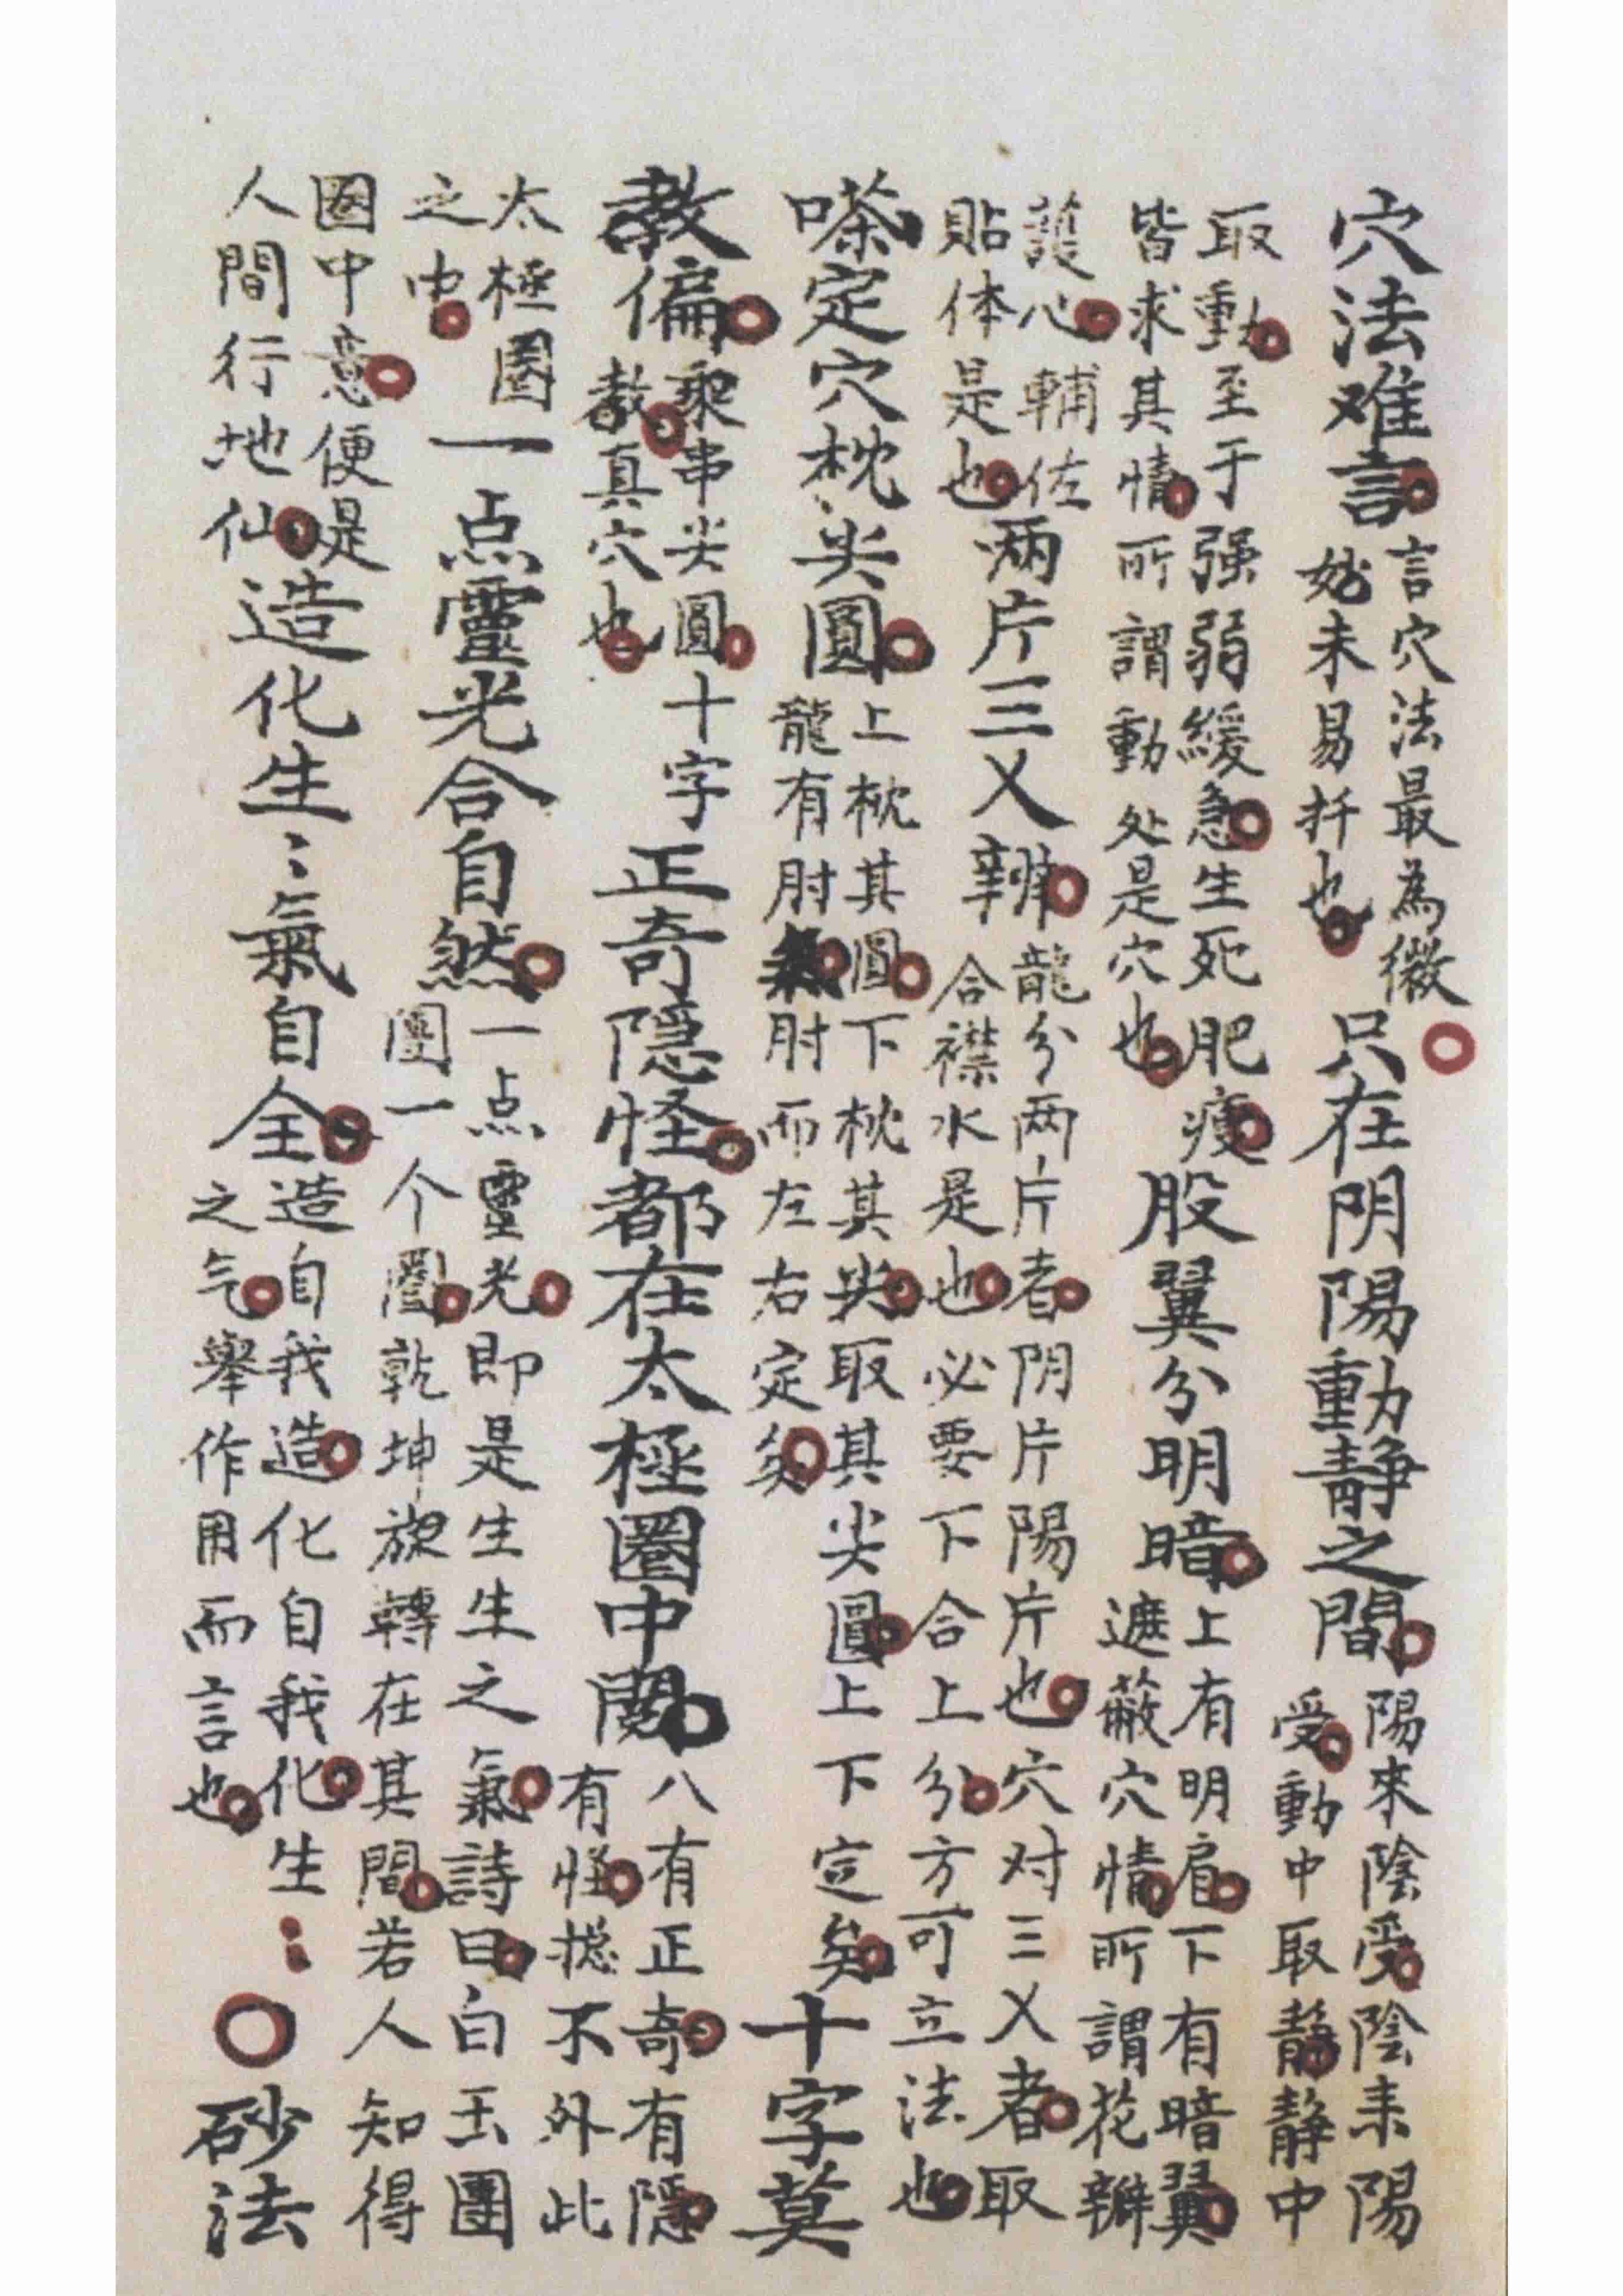 穴法难言言穴法最為微妙未易扦也只在阴陽動靜之間陽來陰受陰来陽受動中取靜靜中
取動至于强弱緩急生死肥瘦皆求其情所謂動处是穴也股翼分明暗上有明肩下有暗翼遮蔽穴情所謂花瓣
護心輔佐貼体是也两片三乂辨龍分两片者阴片陽片也穴对三乂者取合襟水是也必要下合上分方可立法也
嗏定穴枕尖圓上枕其圓下枕其尖取其尖圓上下定矣龍有肘氣肘而左右定矣十字莫
教偏乘串尖圓十字教真穴也正奇隱怪都在太極圈中八有正奇有隱有怪搃不外此
太極圈之中一点靈光合自然一点靈光即是生生之氣詩曰白玉團團一个圈乾坤旋轉在其間若人知得
圈中意便是人間行地仙造化生〻氣自全造自我造化自我化生〻之气舉作用而言也○砂法